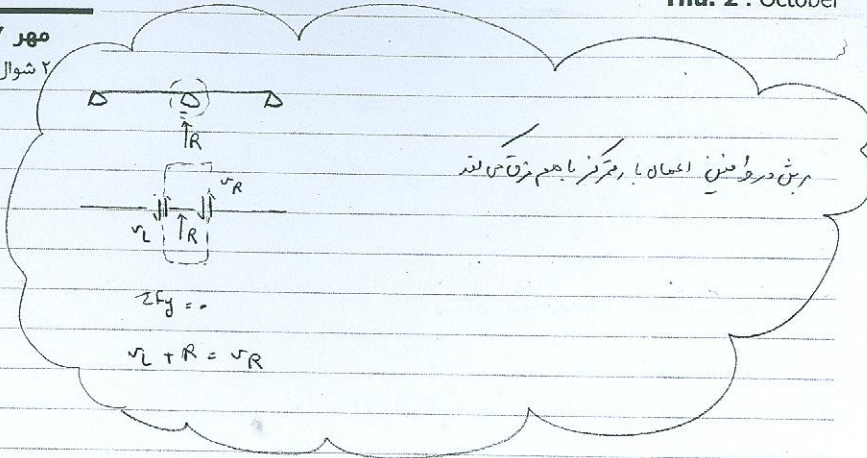 Thu. 2 . October
مهر
۲ شوال
R
برش در طرفین اعمال بار متمرکز با هم فرق می کند
V_R
V_L
R
ΣFy = 0
V_L + R = V_R